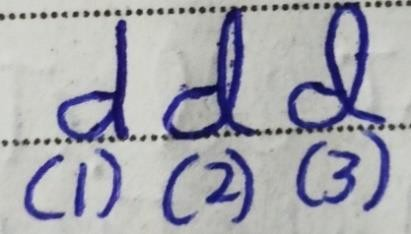 d d d
(1) (2) (3)